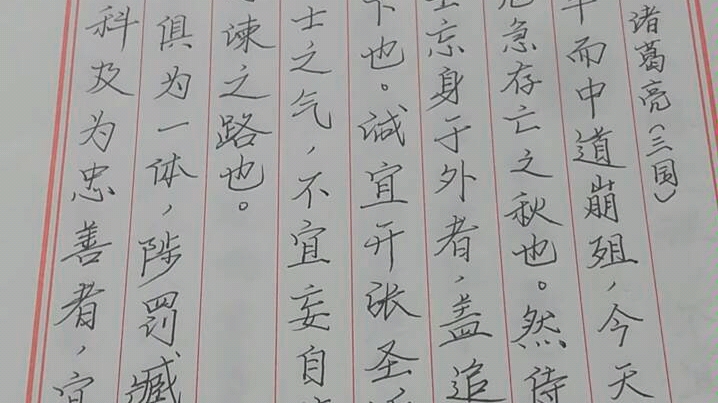 诸葛亮（三国）
而中道崩殂，今天
急存亡之秋也。然侍
忘身于外者，盖追
也。诚宜开张圣
士之气，不宜妄自
谏之路也。
俱为一体，陟罚臧
科及为忠善者，宜